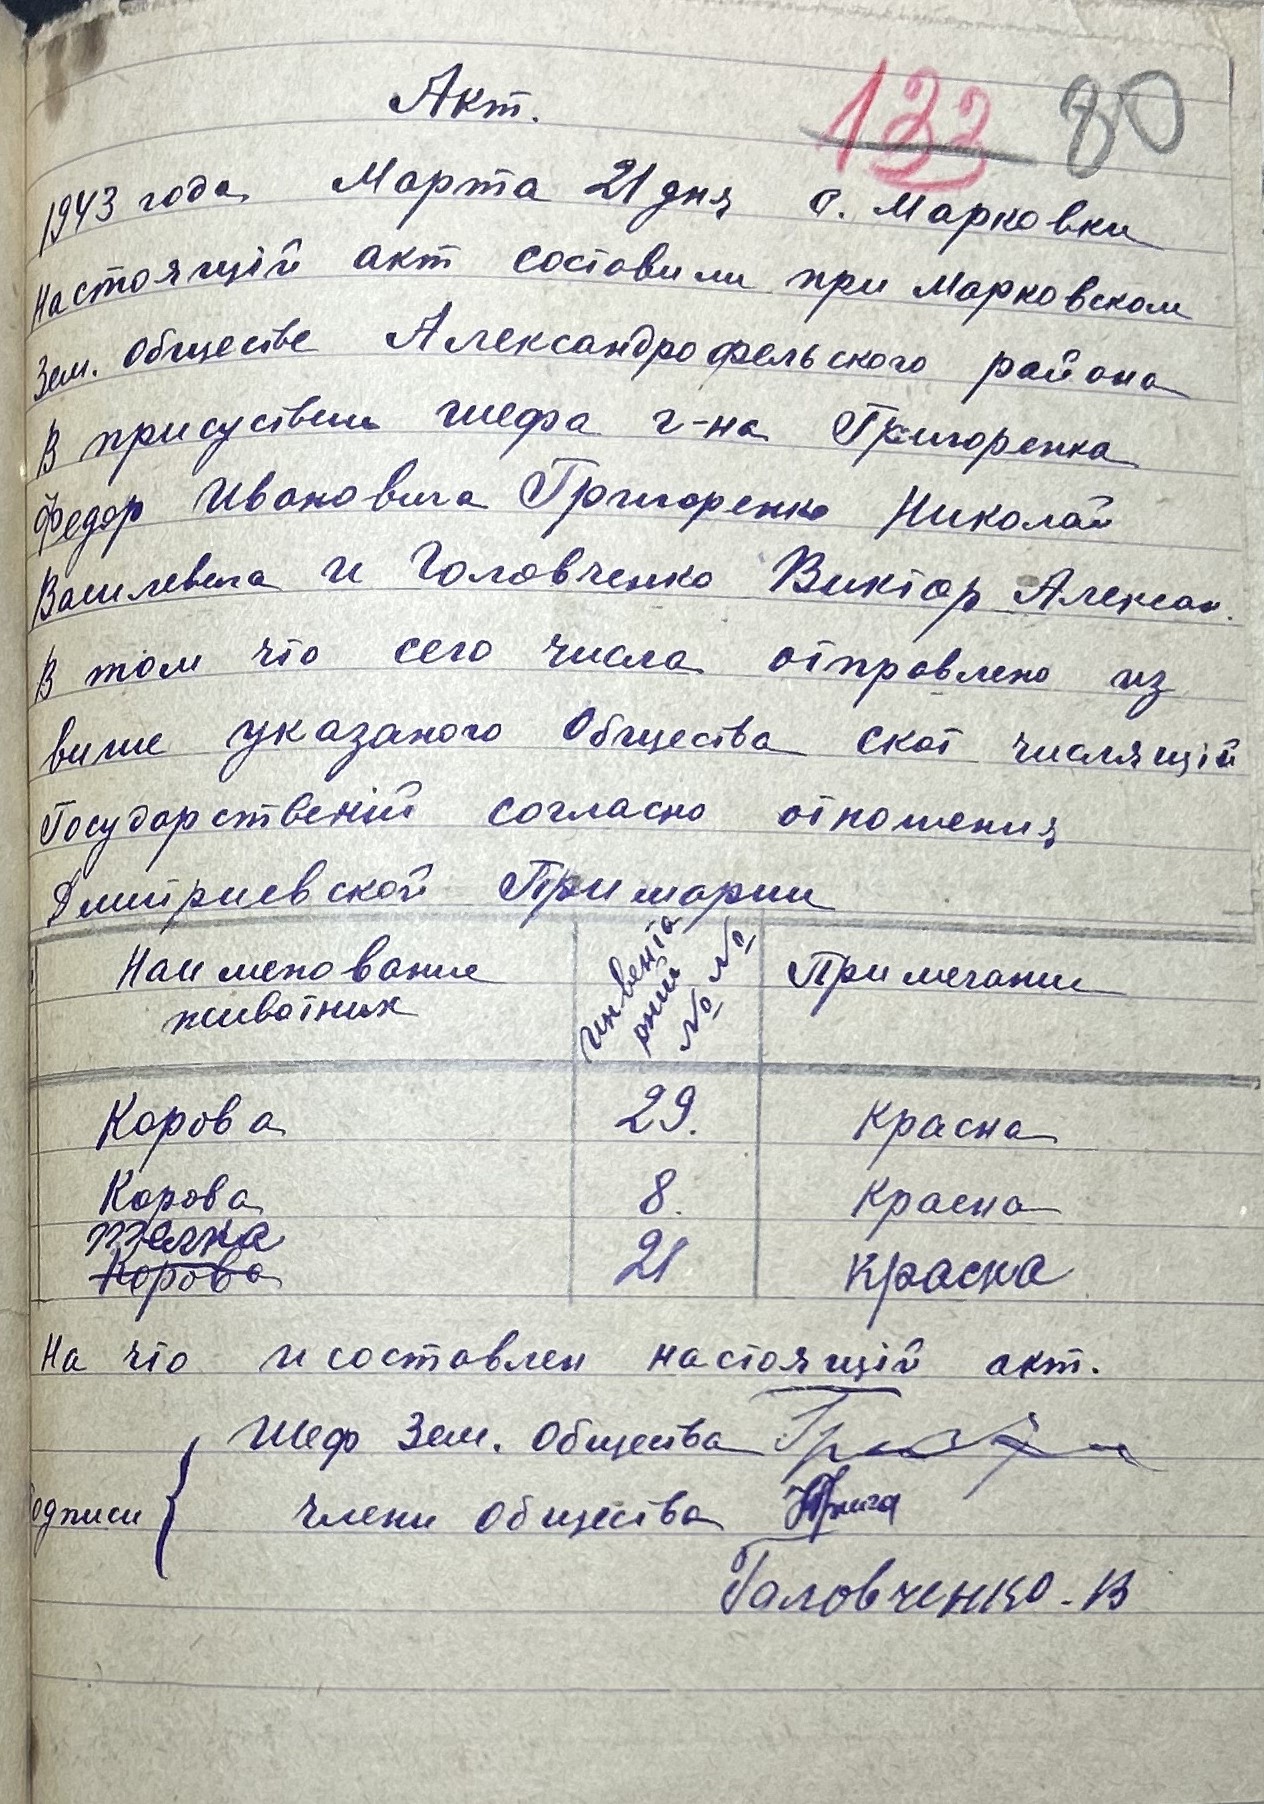 Акт.
132 80
1943 года Марта 21 дня с. Марковки
Настоящій акт составили при Марковском
Зем. Обществе Александрофельского района
В присуствии шефа г-на Григоренка
Федор Ивановича Григоренко Николай
Василевича и Головченко Виктор Алексан.
В том что сего числа отправлено из
више указаного Общества скот числящій
Государственій согласно отношения
Дмитриевской Примарии
Наименование животних | инвента рний №№ | Примечание
Корова 29. Красна
Корова 8. Красна
телка
Корова 21 Красна
На что и составлен настоящій акт.
Шеф Зем. Общества
одписи { члени Общества
Головченко. В